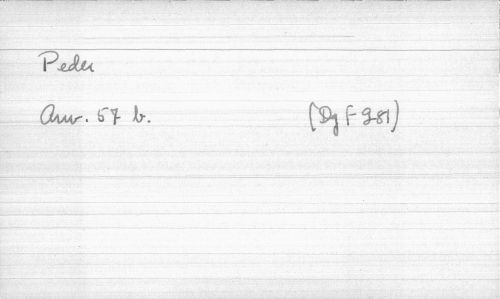 Peder
Anv. 57 b. (DgF 281)